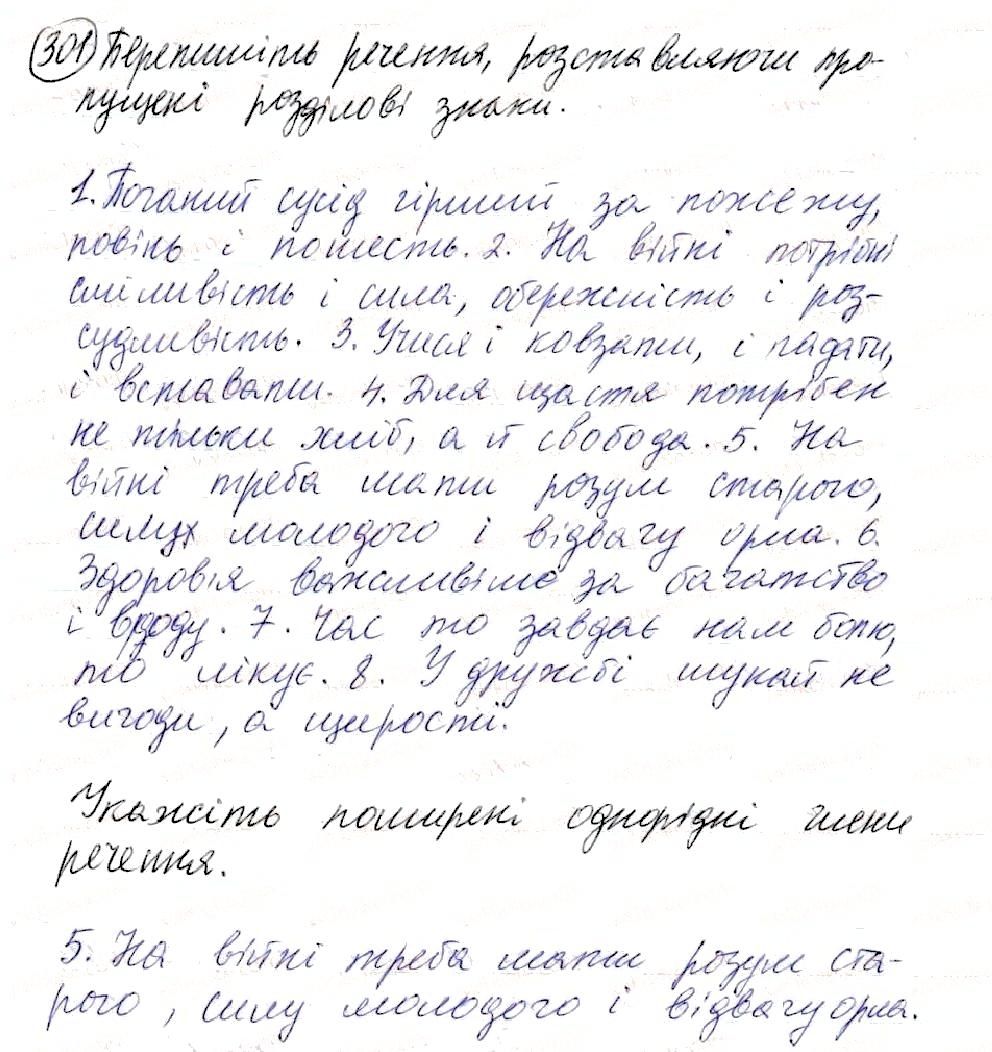 301 Перепишіть речення, розставляючи про-
пущені розділові знаки.
1. Поганий сусід гірший за пожежу,
повінь і пошесть. 2. На війні потрібні
сміливість і сила, обережність і роз-
судливість. 3. Учися і ковзати, і падати,
і вставати. 4. Для щастя потрібен
не тільки хліб, а й свобода. 5. На
війні треба мати розум старого,
силу молодого і відвагу орла. 6.
Здоров'я важливіше за багатство
і вроду. 7. Час то завдає нам болю,
то лікує. 8. У дружбі шукай не
вигоди, а щирості.
Укажіть поширені однорідні члени
речення.
5. На війні треба мати розум ста-
рого, силу молодого і відвагу орла.